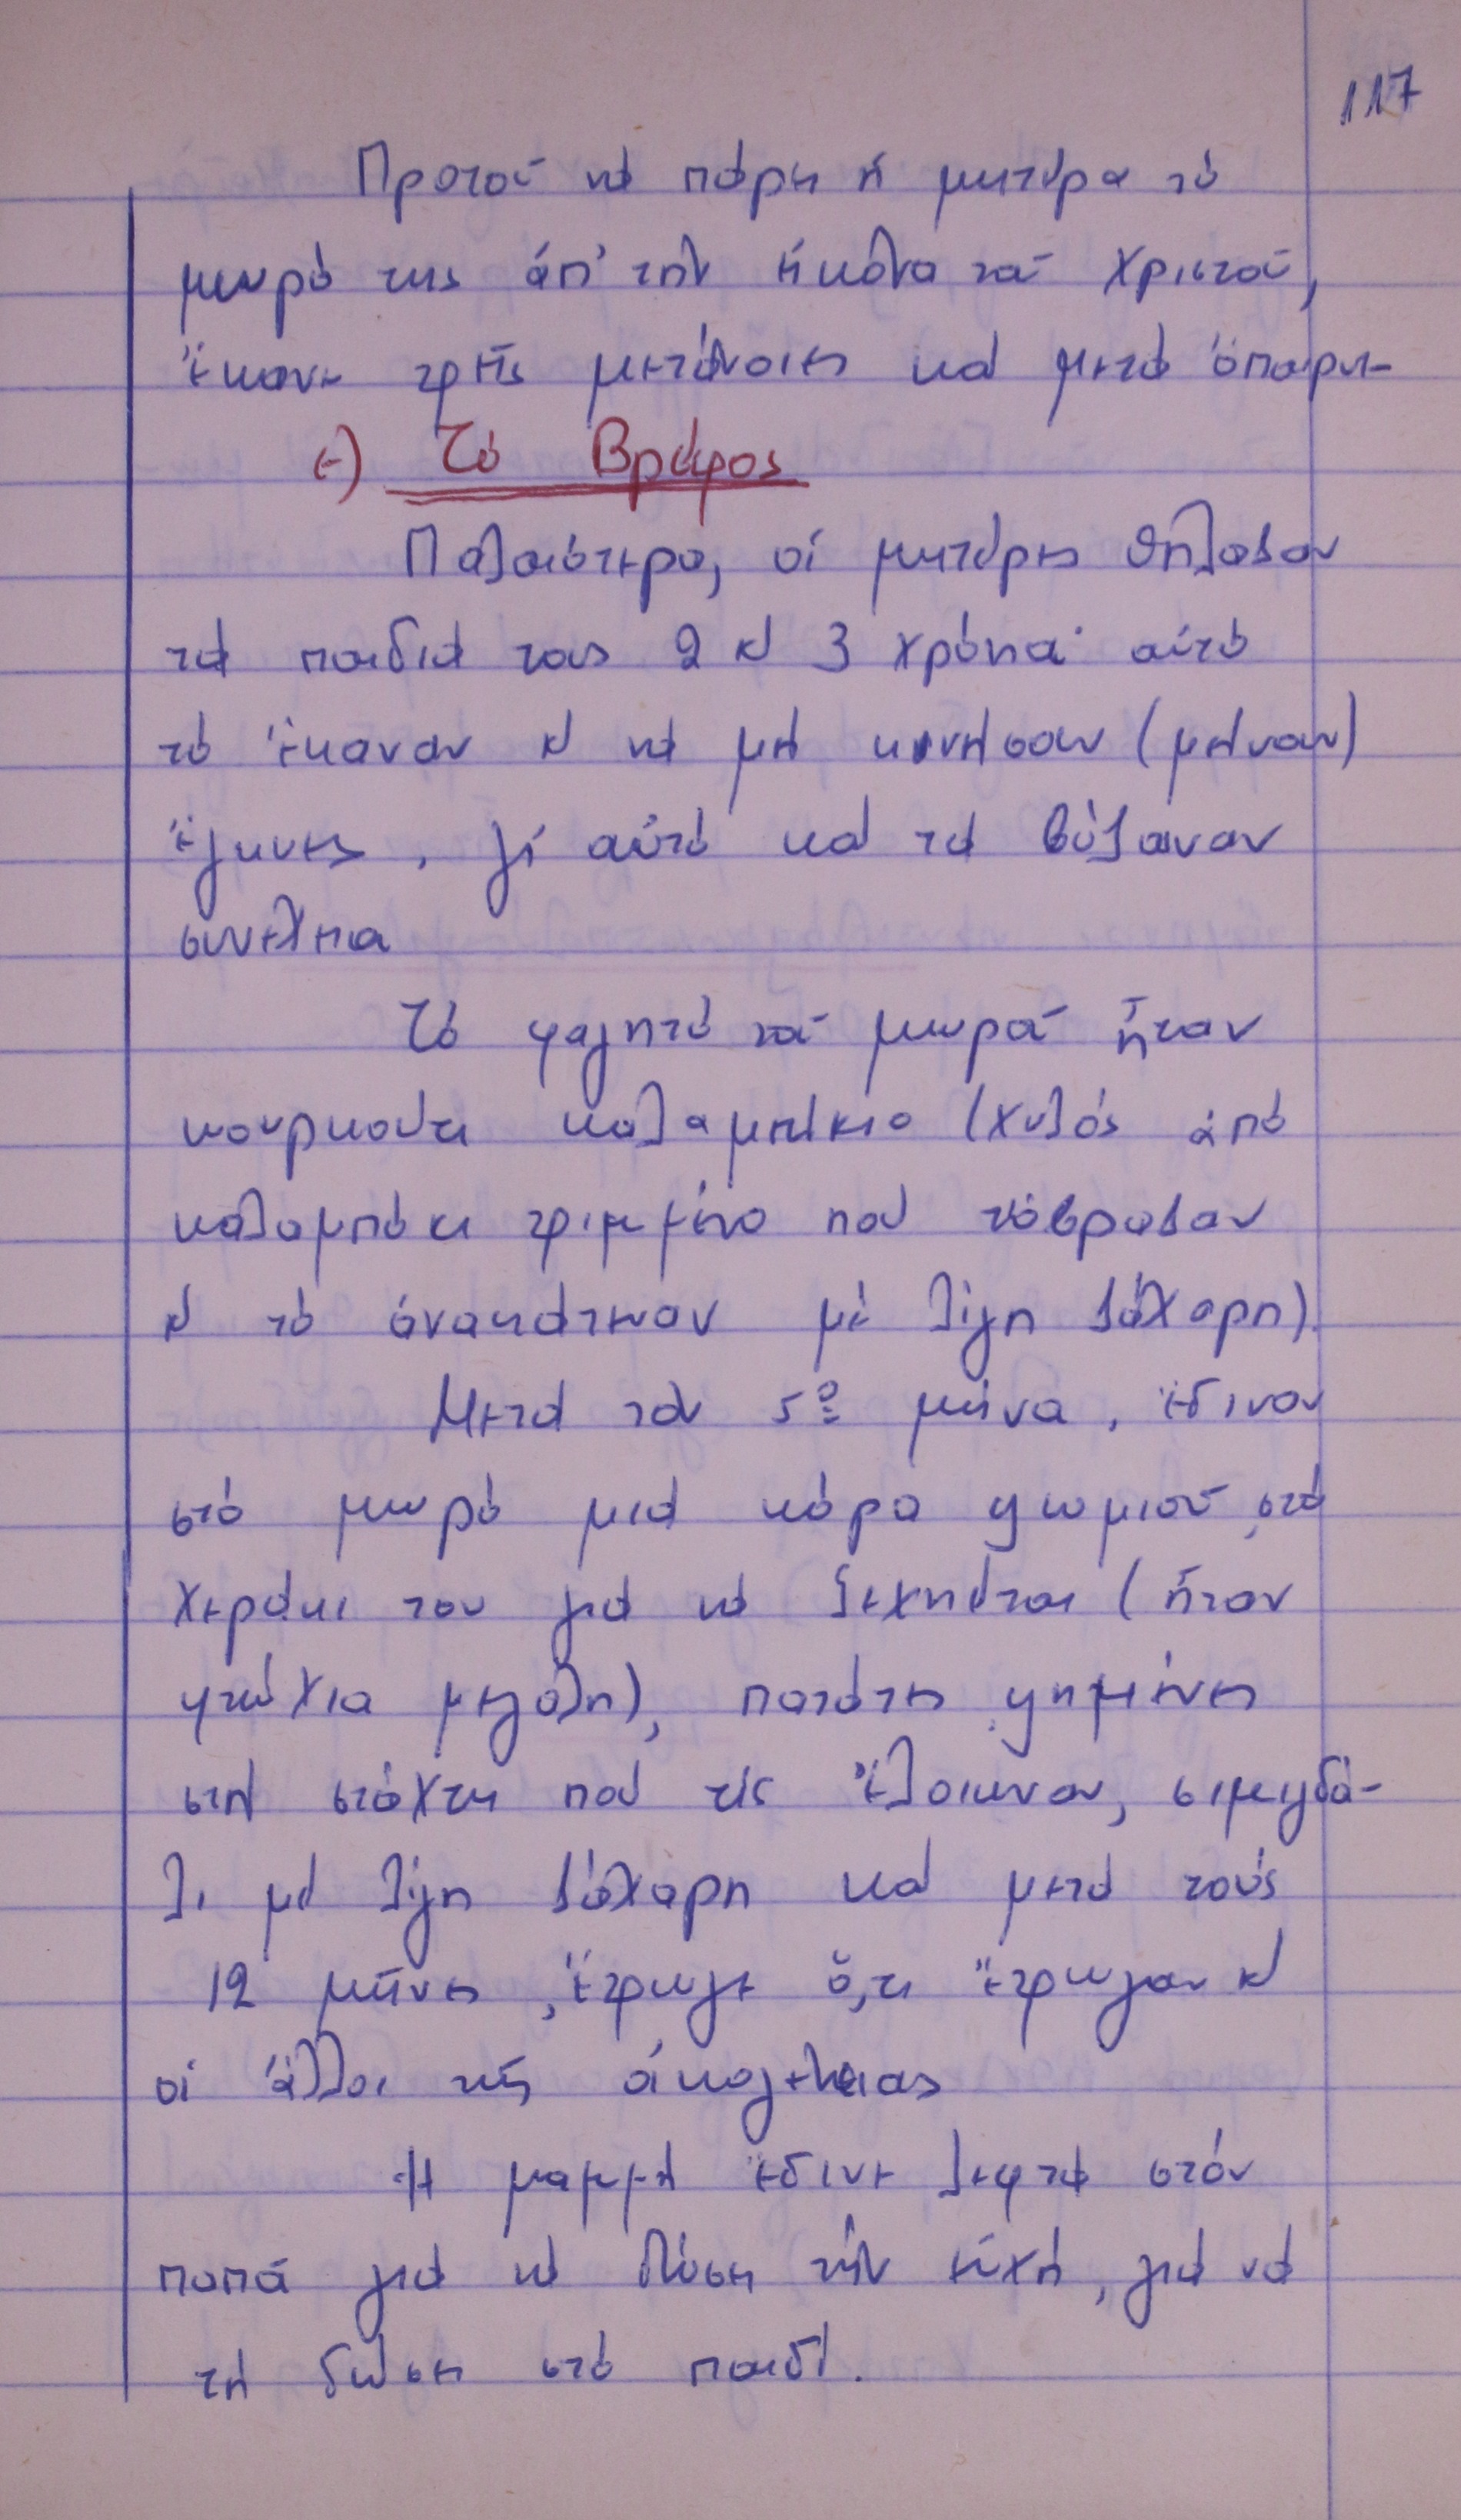 117
Προτοῦ νά πάρη ἡ μητέρα τό
μωρό της ἀπ' τήν εἰκόνα τοῦ Χριστοῦ,
ἔκανε τρεῖς μετάνοιες καί μετά τὄπαιρνε-
ε) Τό Βρέφος
Παλαιότερα, οἱ μητέρες θήλαζαν
τά παιδιά τους 2 κ' 3 χρόνια· αὐτό
τό ἔκαναν κ' νά μή κινήσουν (μείνουν)
ἔγκυες, γι' αὐτό καί τά βύζαιναν
συνέχεια
Τό φαγητό τοῦ μωροῦ ἦταν
κουρκούτι καλαμπέκιο (χυλός ἀπό
καλαμπόκι τριμμένο πού τόβραζαν
κ' τό ἀνακάτωναν μέ λίγη ζάχαρη).
Μετά τόν 5º μήνα, ἔδιναν
στό μωρό μιά κόρα ψωμιοῦ στό
χεράκι του γιά νά ξεχνιέται (ἦταν
φτώχια μεγάλη), πατάτες ψημένες
στή στάχτη πού τίς ἔλοιωναν, σιμιγδά-
λι μέ λίγη ζάχαρη καί μετά τούς
12 μῆνες, ἔτρωγε ὅ,τι ἔτρωγαν κ'
οἱ ἄλλοι τῆς οἰκογένειας
Ἡ μαμμή ἔδινε λεφτά στόν
παπᾶ γιά νά δώση τήν εὐχή, γιά νά
τή δώση στό παιδί.